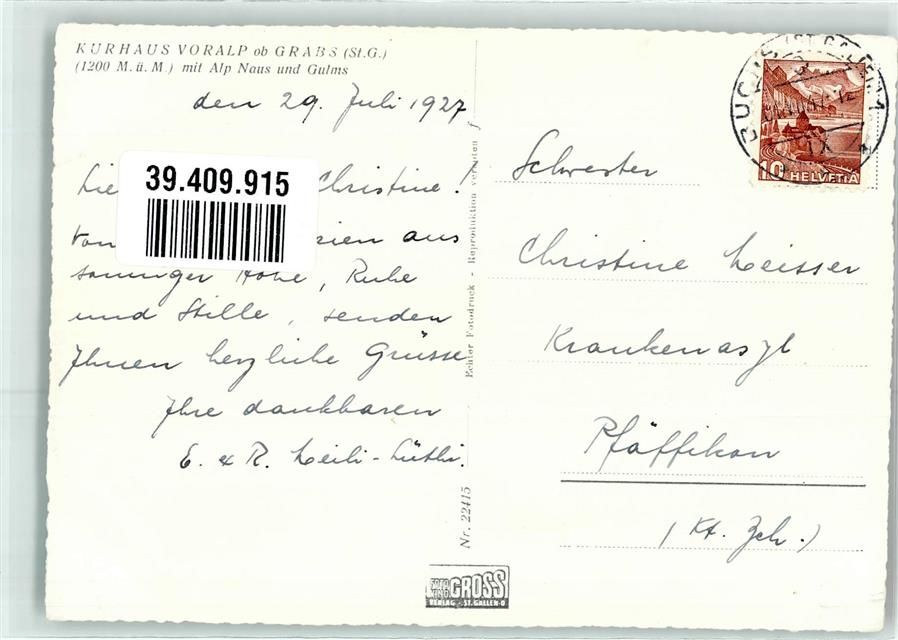 KURHAUS VORALP ob GRABS (St.G.)
(1200 M. ü. M.) mit Alp Naus und Gulms
den 29. Juli 1927
Christine!
39.409.915
aus
sonniger Höhe, Ruhe
und Stille, senden
Ihnen herzliche Grüsse
Ihre dankbaren
E. & R. Leili-Lüthi.
Echter Fotodruck - Reproduktion verboten
Nr. 22415
GROSS
VERLAG ST. GALLEN-O
BUCHS (ST. GALLEN) 1
10 HELVETIA
Schwester
Christine Leisser
Krankenasyl
Pfäffikon
(Kt. Zch.)